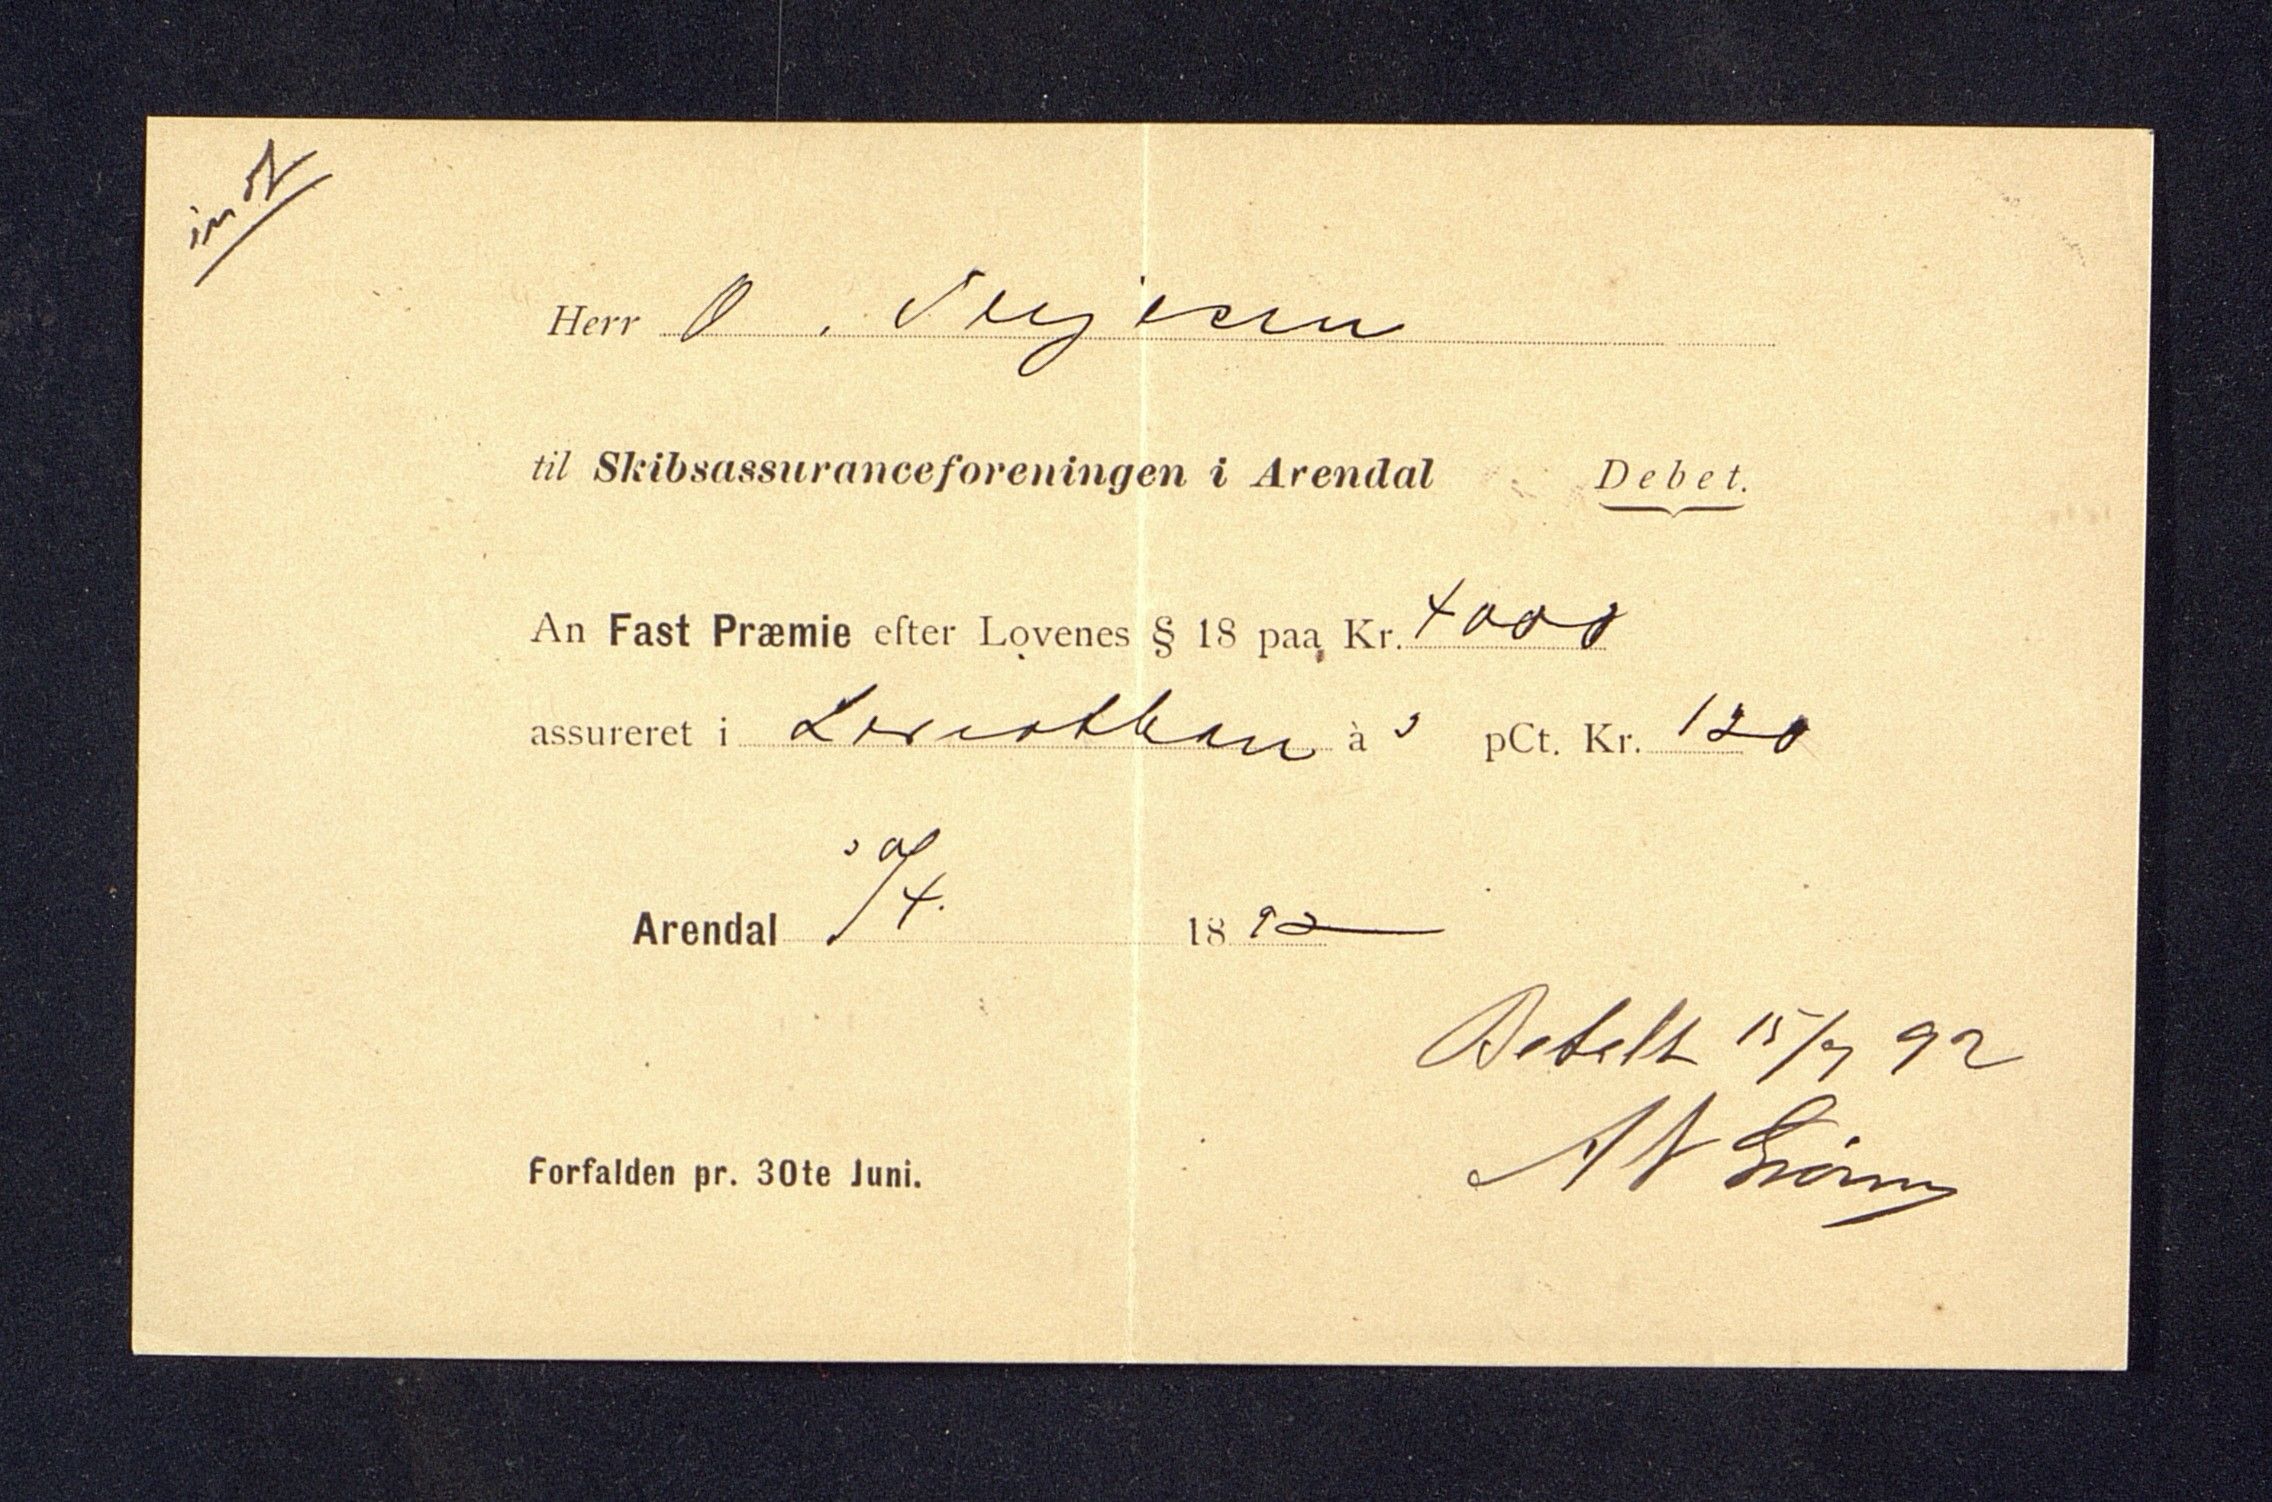 Herr O. Terjesen
til Skibsassuranceforeningen i Arendal Debet.
An Fast Præmie efter Lovenes § 18 paa Kr. 4000
assureret i Leviathan à 3 pCt. Kr. 120
Arendal 30/4. 1892
Betalt 15/7 92
Forfalden pr. 30te Juni.